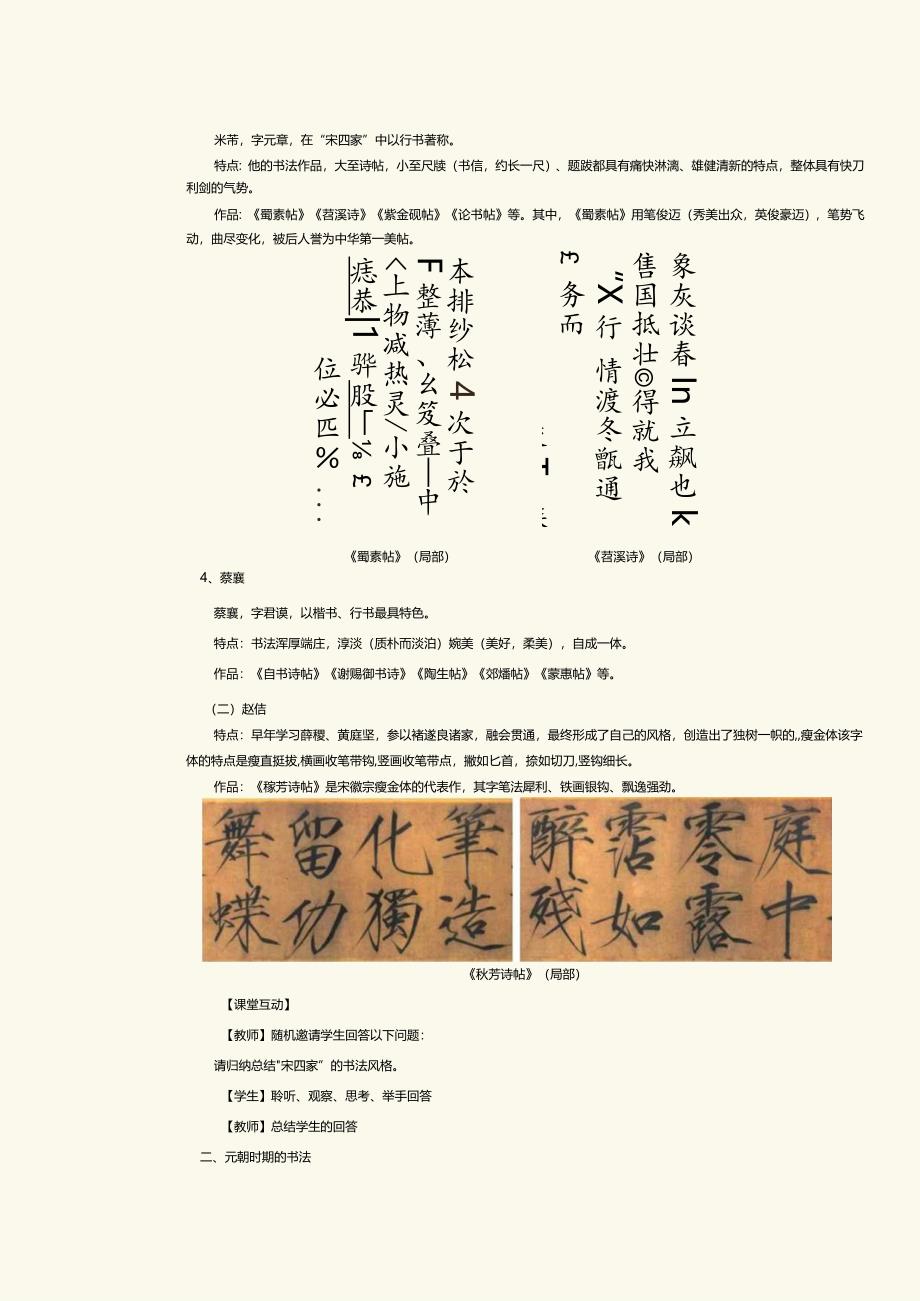 米芾，字元章，在“宋四家”中以行书著称。
特点: 他的书法作品，大至诗帖，小至尺牍（书信，约长一尺）、题跋都具有痛快淋漓、雄健清新的特点，整体具有快刀
利剑的气势。
作品: 《蜀素帖》《苕溪诗》《紫金砚帖》《论书帖》等。其中，《蜀素帖》用笔俊迈（秀美出众，英俊豪迈），笔势飞
动，曲尽变化，被后人誉为中华第一美帖。
本排纱松 4 次于於
F 整薄 、幺笈叠一中
<上物减热灵/小施
痣恭|1 骅股⌙⅛ £
位必匹% . . .
象灰谈春 In 立飙也 k
售国抵壮©得就我
"X 行 情渡冬甑通
£ 务而
《蜀素帖》（局部）
《苕溪诗》（局部）
4、蔡襄
蔡襄，字君谟，以楷书、行书最具特色。
特点：书法浑厚端庄，淳淡（质朴而淡泊）婉美（美好，柔美），自成一体。
作品：《自书诗帖》《谢赐御书诗》《陶生帖》《郊燔帖》《蒙惠帖》等。
（二）赵佶
特点：早年学习薛稷、黄庭坚，参以褚遂良诸家，融会贯通，最终形成了自己的风格，创造出了独树一帜的,,瘦金体该字
体的特点是瘦直挺拔,横画收笔带钩,竖画收笔带点，撇如匕首，捺如切刀,竖钩细长。
作品：《稼芳诗帖》是宋徽宗瘦金体的代表作，其字笔法犀利、铁画银钩、飘逸强劲。
筆造
化獨
留功
舞蝶
庭中
零露
霑如
醉殘
《秋芳诗帖》（局部）
【课堂互动】
【教师】随机邀请学生回答以下问题：
请归纳总结"宋四家”的书法风格。
【学生】聆听、观察、思考、举手回答
【教师】总结学生的回答
二、元朝时期的书法